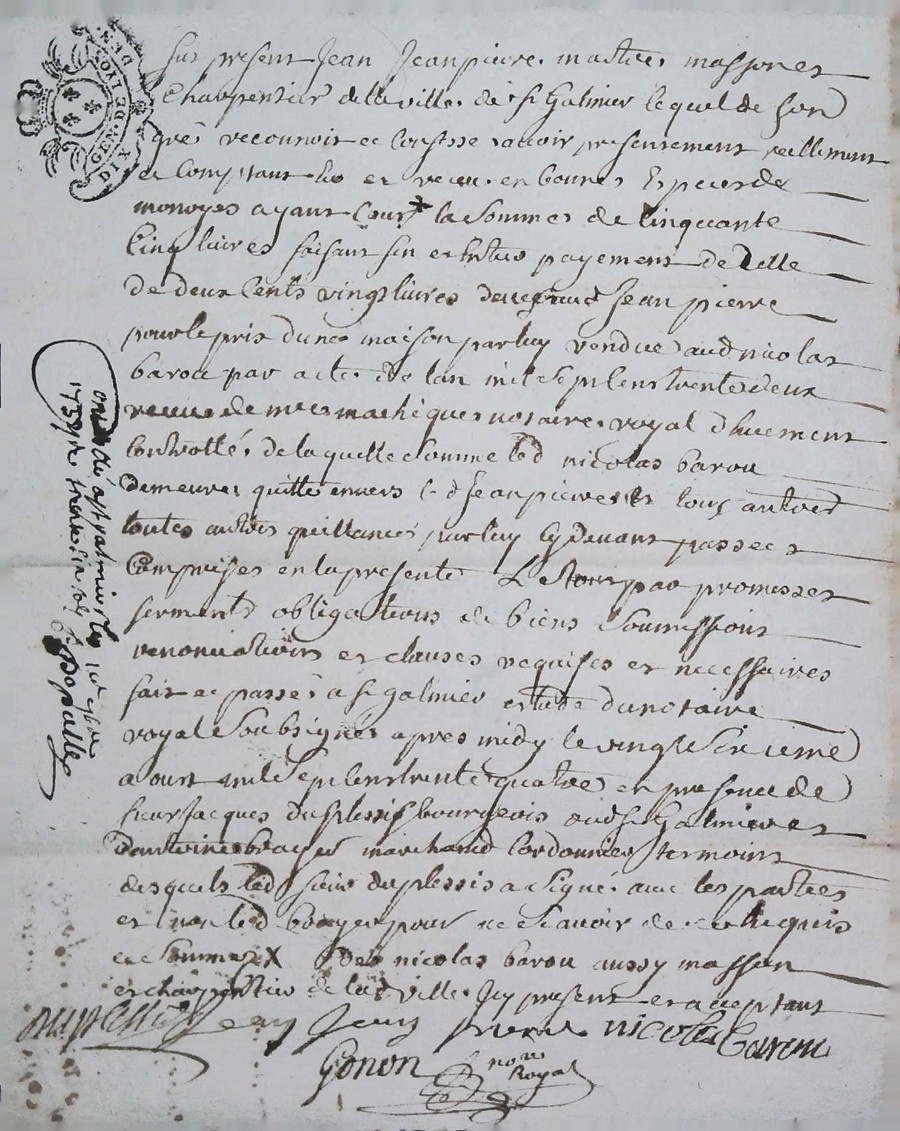 GEN. DE LYON
DIX DEN
fut present Jean Jeanpierre maitre masson et
Charpentier de la ville de st Galmier lequel de son
gré reconnoit et confesse avoir presentement reellement
et comptant eu et receu en bonnes Especes de
monoyes ayant cours X la somme de cinquante
cinq livres faisant fin et entier payement de celle
de deux cents vingt livres deue aud Jean pierre
pour le pris dune maison par luy vendue aud nicolas
barou par acte de lan mil sept cens trente deux
receu de me notaire royal duement
controllé de laquelle somme led nicolas barou
demeure quitte envers led Jeanpierre et tous autres
toutes autres quittances par luy cy devant passees
Comprises en la presente Et par promesses
serments obligations de biens soumissions
renonciations et clauses requises et necessaires
fait et passé a st galmier estude du notaire
royal soubsigné apres midy le vingt sixieme
aoust mil sept cens trente quatre en presence de
sieur Jacques duplessis bourgeois aud st Galmier et
dantoine boayer marchand cordonnier temoins
desquels led sieur duplessis a signé avec les parties
et non led boayer pour ne scavoir de ce requis
et sommé X dud nicolas barou aussy masson
et charpentier de lad ville Icy present et acceptant
duplessis Jean Jean pierre nicolas barou
Gonon nore
Royal
st galmier les
1734 treize sols